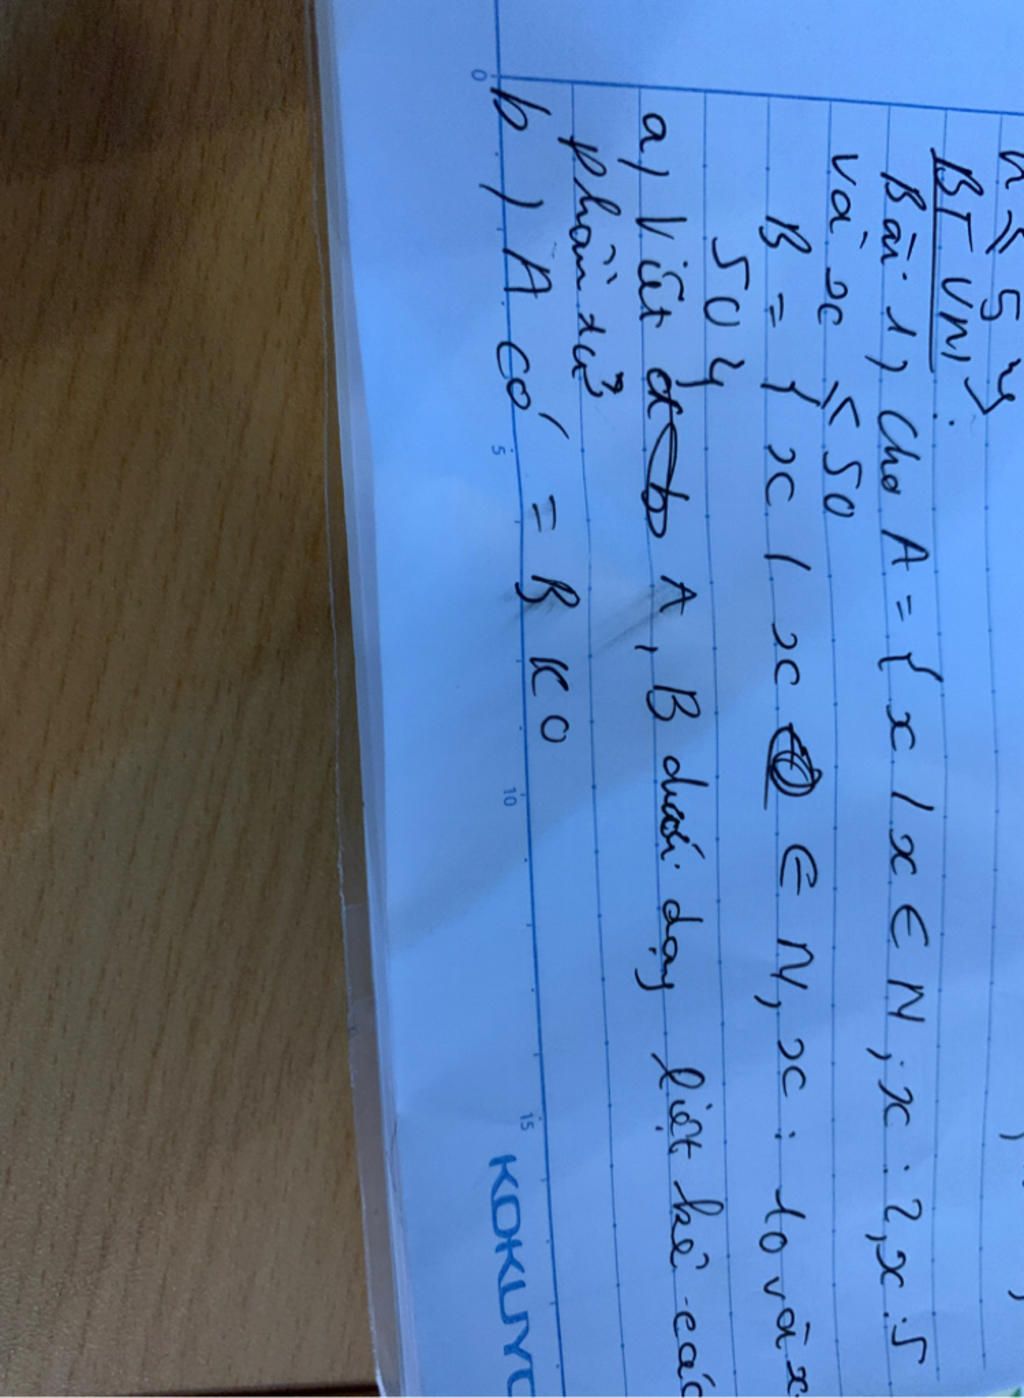 n ⩽ 5 }
BT VN :
Bài 1, Cho A = { x / x ∈ N ; x : 2, x : 5
và x ⩽ 50
B = { x / x ∈ N, x : 10 và x
50 }
a, Viết A, B dưới dạng liệt kê các
phần tử
b, A có = B ko
0 5 10 15 KOKUYO